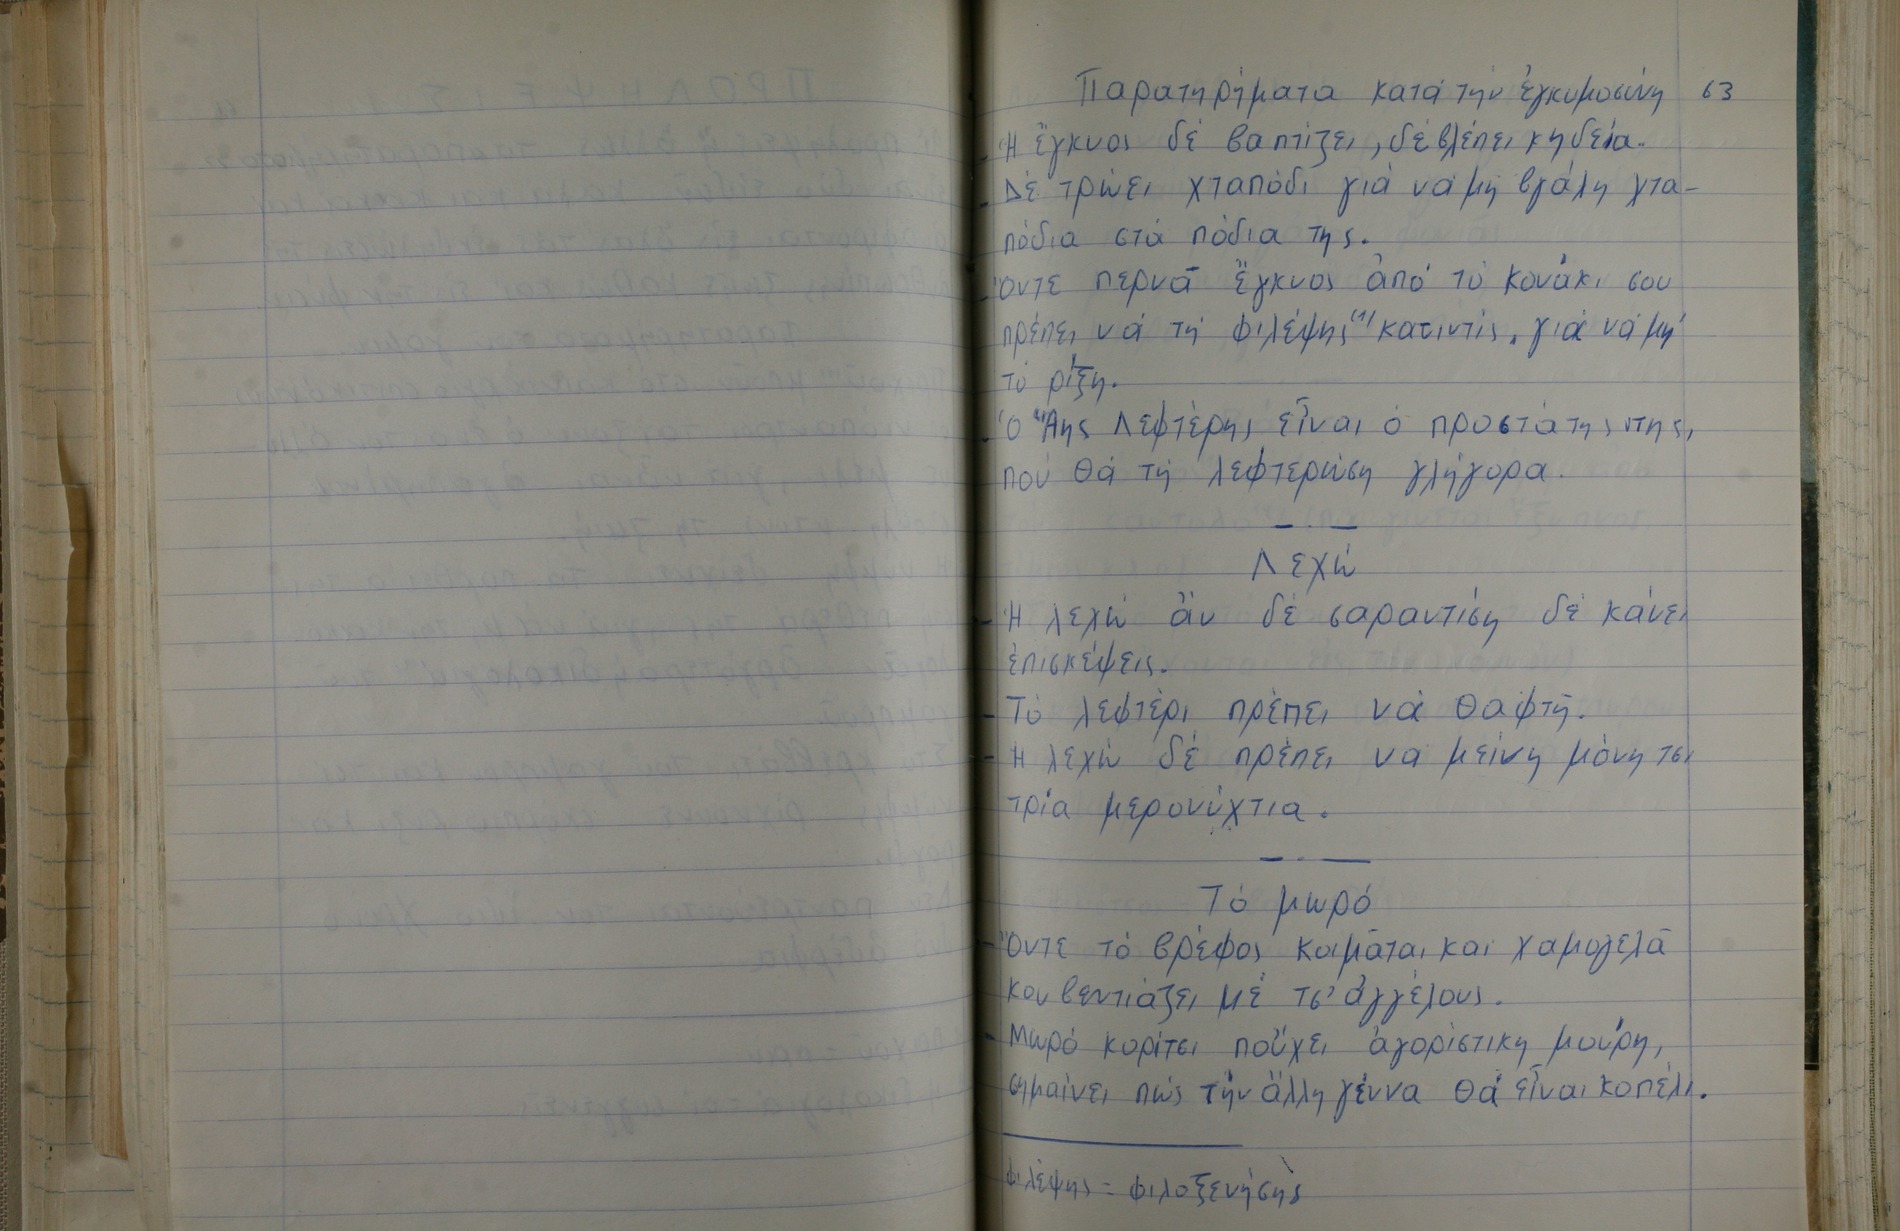 Παρατηρήματα κατά τήν ἐγκυμοσύνη 63
- Ἡ ἔγκυος δέ βαπτίζει, δέ βλέπει κηδεία.
- Δέ τρώει χταπόδι γιά νά μή βγάλη χτα-
πόδια στά πόδια της.
- Ὄντε περνᾶ ἔγκυος ἀπό τό κονάκι σου
πρέπει νά τή φιλέψης(1) κατιντίς, γιά νά μή
τό ρίξη.
- Ὁ Ἅης Λεφτέρης εἶναι ὁ προστάτης ντης,
πού θά τή λεφτερώση γλήγορα.
Λεχώ
- Ἡ λεχώ ἄν δέ σαραντίση δέ κάνει
ἐπισκέψεις.
- Τό λεφτέρι πρέπει νά θαφτῆ.
- Η λεχώ δέ πρέπει να μείνη μόνη τσι
τρία μερονύχτια.
Τό μωρό
- Ὄντε τό βρέφος κοιμᾶται και χαμογελᾶ
κουβεντιάζει μέ τσ' ἀγγέλους.
- Μωρό κορίτσι ποὔχει ἀγορίστικη μούρη,
σημαίνει πώς τήν ἄλλη γέννα θά εἶναι κοπέλι.
φιλέψης = φιλοξενήσης